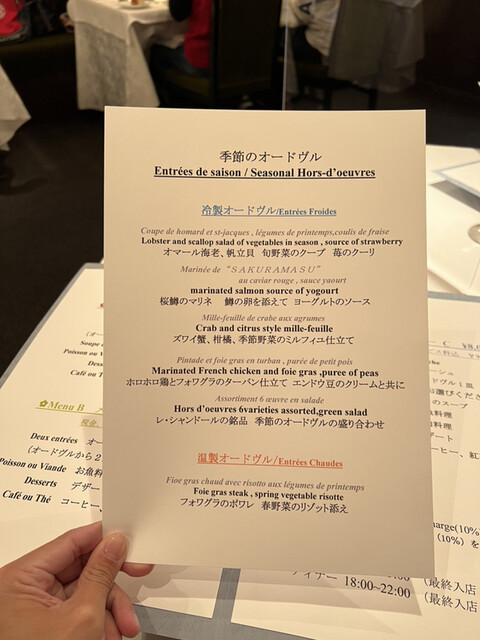 季節のオードヴル
Entrées de saison / Seasonal Hors-d'oeuvres
冷製オードヴル/Entrées Froides
Coupe de homard et st-jacques , légumes de printemps,coulis de fraise
Lobster and scallop salad of vegetables in season , source of strawberry
オマール海老、帆立貝 旬野菜のクープ 苺のクーリ
Marinée de "SAKURAMASU"
au caviar rouge , sauce yaourt
marinated salmon source of yogourt
桜鱒のマリネ 鱒の卵を添えて ヨーグルトのソース
Mille-feuille de crabe aux agrumes
Crab and citrus style mille-feuille
ズワイ蟹、柑橘、季節野菜のミルフィユ仕立て
Pintade et foie gras en turban , purée de petit pois
Marinated French chicken and foie gras ,puree of peas
ホロホロ鶏とフォワグラのターバン仕立て エンドウ豆のクリームと共に
Assortiment 6 œuvre en salade
Hors d'oeuvres 6varieties assorted,green salad
レ・シャンドールの銘品 季節のオードヴルの盛り合わせ
温製オードヴル/Entrées Chaudes
Fioe gras chaud avec risotto aux légumes de printemps
Foie gras steak , spring vegetable risotte
フォワグラのポワレ 春野菜のリゾット添え
Soupe
Poisson ou
Café ou
Menu B
Deux entrées オー
(オードヴルから2
Poisson ou Viande お魚料
Desserts デザー
Café ou Thé コーヒー、
C ¥8,
のスープ
料理
料理
ート
ーヒー、紅
harge(10%)
(10%) を
ディナー 18:00~22:00
(最終入店
(最終入店